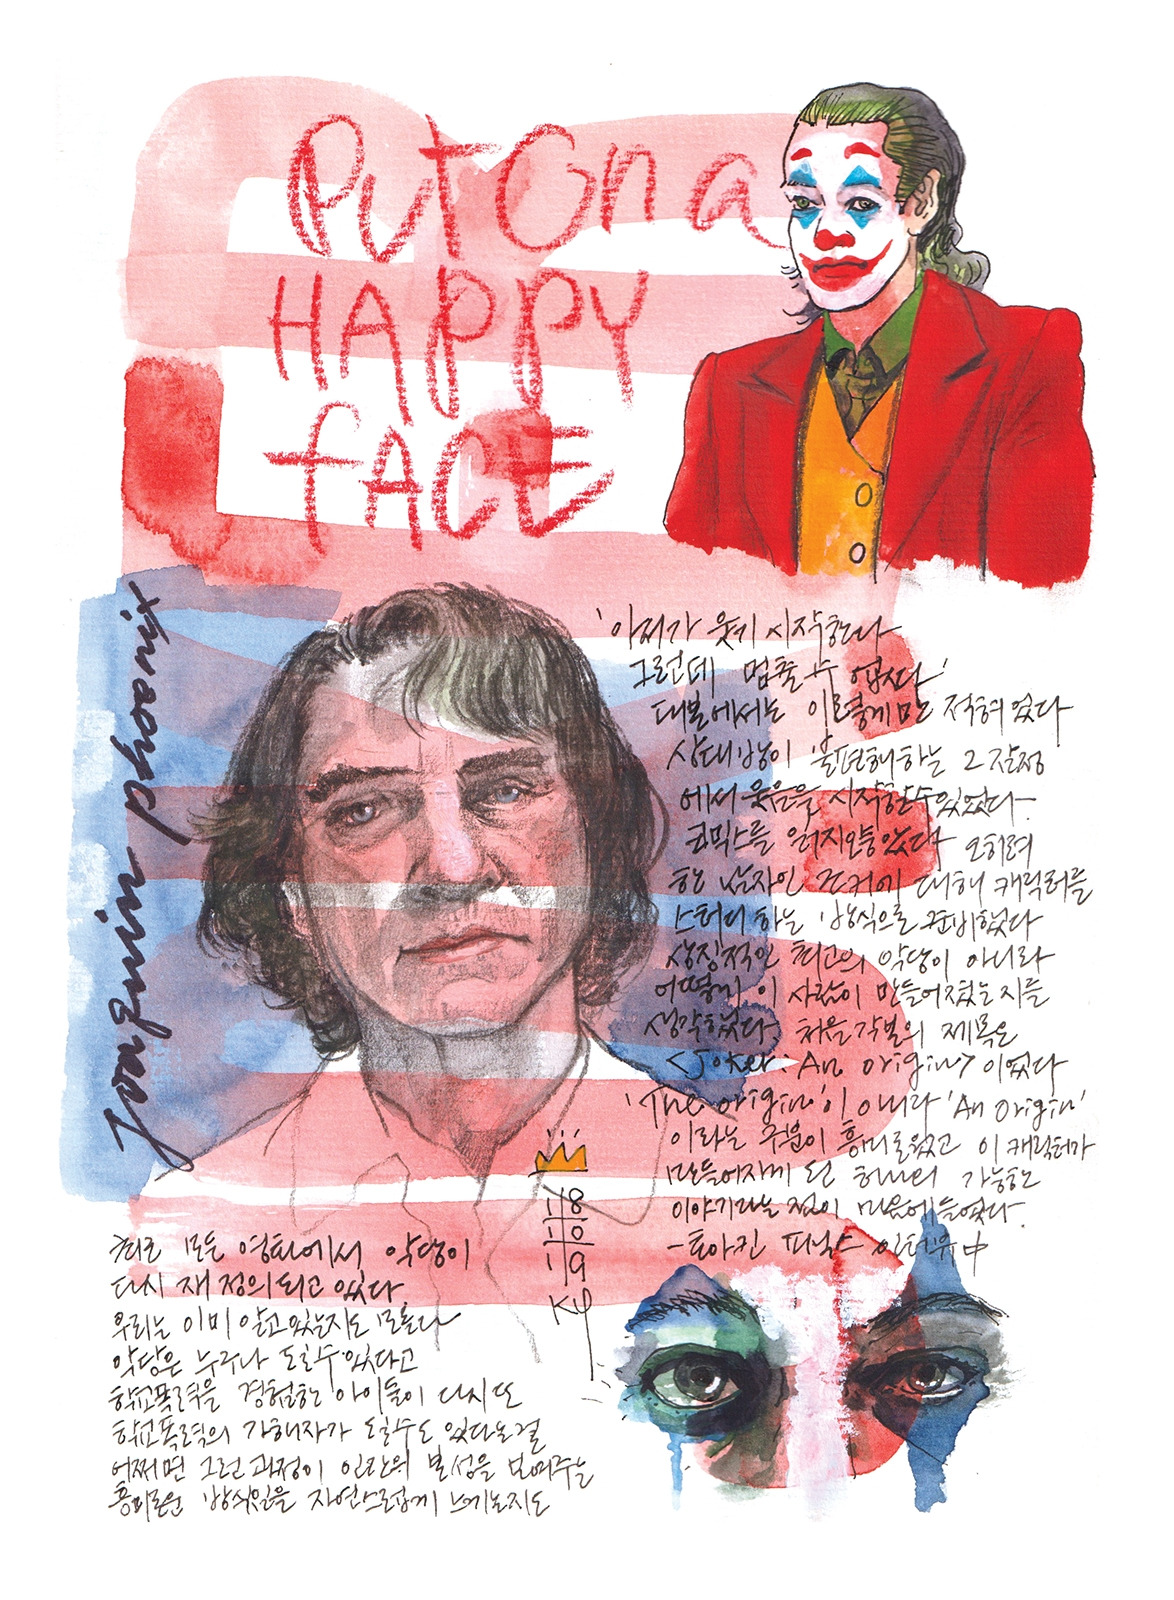 Put On a
HAPPY
FACE
Joaquin phoenix
'아서가 웃기 시작한다
그런데 멈출 수 없다'
대본에서는 이렇게만 적혀있었다
상대방이 불편해하는 그 감정
에서 웃음을 시작할수있었다
코믹스를 읽지 않았다 오히려
한 남자인 조커에 대해 캐릭터를
스터디 하는 방식으로 준비했다
상징적인 최고의 악당이 아니라
어떻게 이 사람이 만들어졌는지를
생각했었다 처음 각본의 제목은
<Joker: An origin> 이었다
'The origin'이 아니라 'An Origin'
이라는 부분이 흥미로웠고 이 캐릭터가
만들어지게 된 하나의 가능한
이야기라는 점이 마음에들었다.
-호아킨 피닉스 인터뷰中
최근 모든 영화에서 악당이
다시 재정의되고 있다
우리는 이미 알고있는지도 모른다
악당은 누구나 될수있다고
학교폭력을 경험한 아이들이 다시 또
학교폭력의 가해자가 될수도 있다는걸
어쩌면 그런 과정이 인간의 본성을 보여주는
흥미로운 방식임을 자연스럽게 느끼는지도
1/8
1/0
1/9